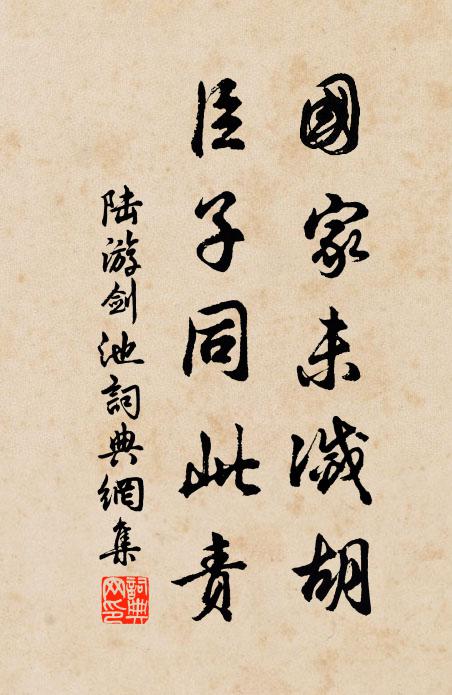 國家未滅胡
臣子同此責
陆游剑池詞典網集
詞典網印